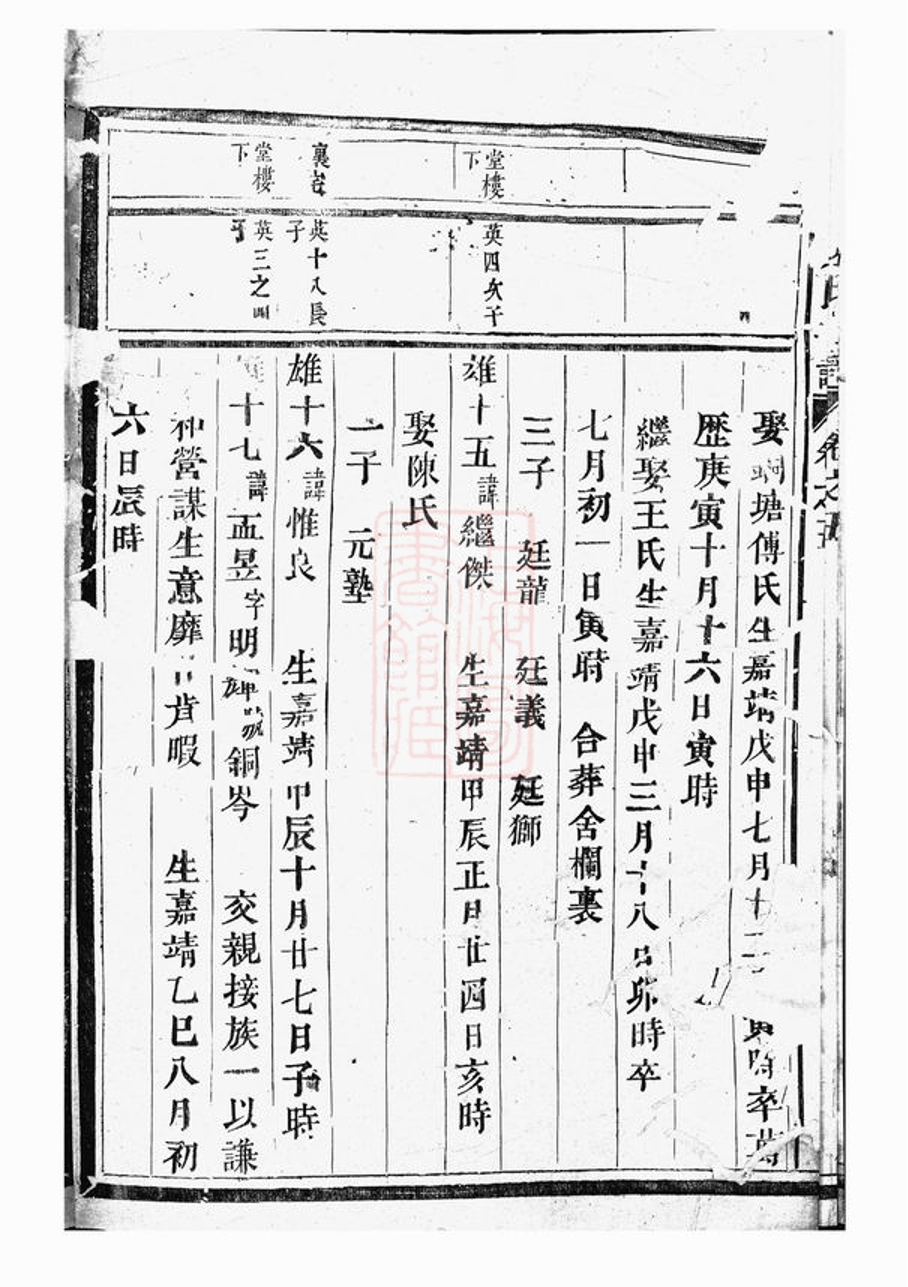 氏
譜
卷之五
娶
塘傅氏生嘉靖戊申七月十
寅時卒萬
歷庚寅十月十六日寅時
繼娶王氏生嘉靖戊申三月十八日卯時卒
七月初一日寅時 合葬舍欄裏
三子 廷龍 廷義 廷獅
堂樓下
英四次子
雄十五諱繼傑 生嘉靖甲辰正月廿四日亥時
娶陳氏
一子 元塾
裏
英十八長子
雄十六諱惟良 生嘉靖甲辰十月廿七日子時
堂樓下
英三之四子
十七諱孟昱字明輝號銅岑 交親接族一以謙
和營謀生意靡日肯暇 生嘉靖乙巳八月初
六日辰時